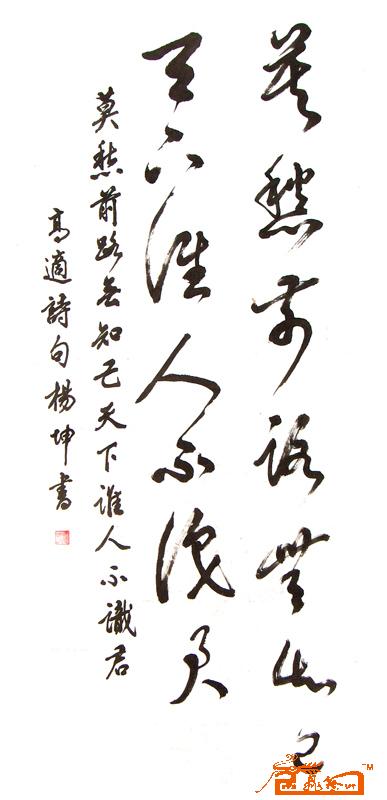 莫愁前路無知己
天下誰人不識君
莫愁前路無知己天下誰人不識君
高適詩句楊坤書